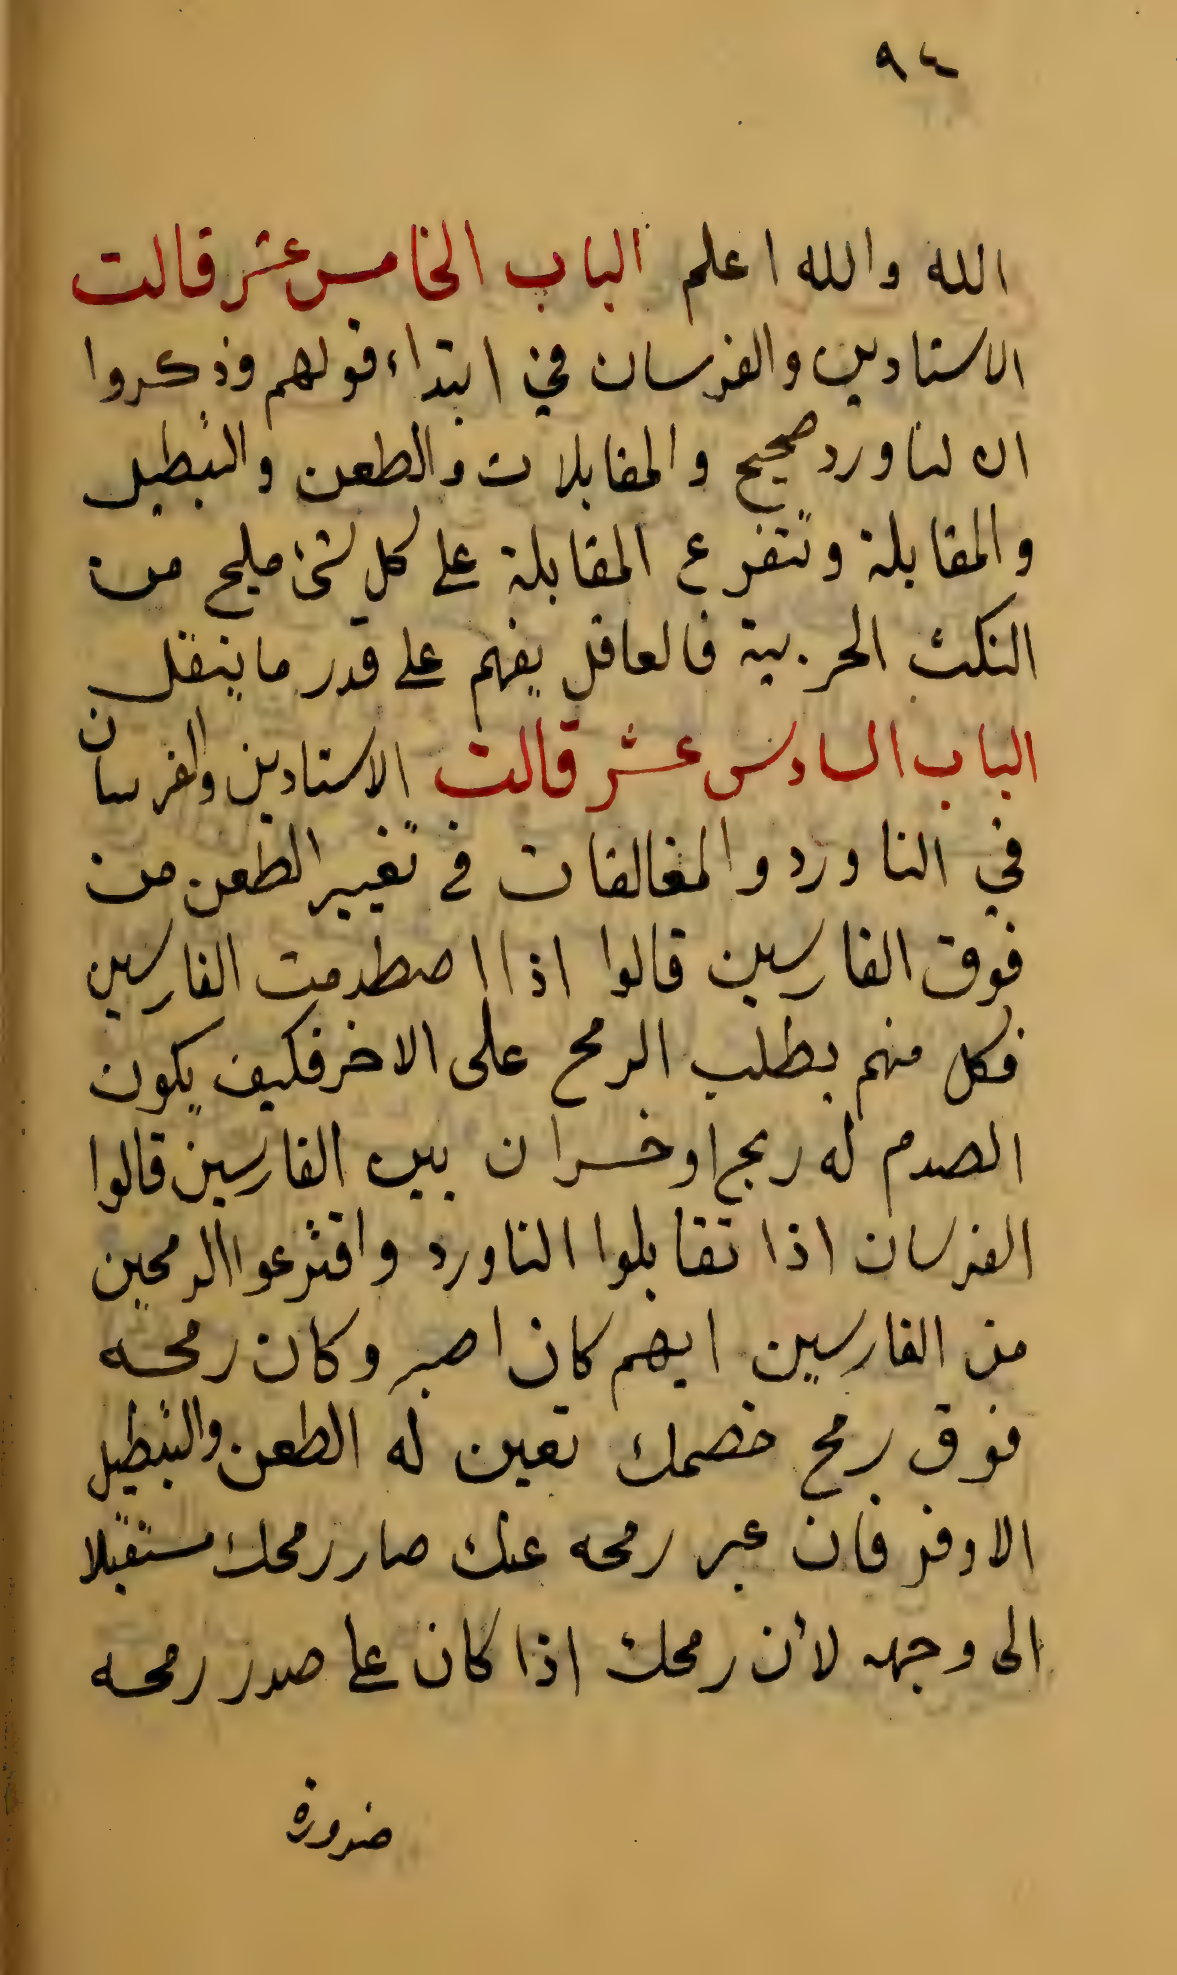 ٩٤
الله والله اعلم الباب الخامس عشر قالت
الاستادين والفرسان في ابتداء قولهم وذكروا
ان لناورد صحيح والمقابلات والطعن والتبطيل
والمقابلة وتتفرع المقابلة على كل شئ مليح من
النكث الحربية فالعاقل يفهم على قدر ما ينقل
الباب السادس عشر قالت الاستادين والفرسان
في الناورد والمغالقات في تغيير الطعن من
فوق الفارسين قالوا اذا اصطدمت الفارسين
فكل منهم يطلب الرمح على الاخر فكيف يكون
الصدم له ربح اوخسران بين الفارسين قالوا
الفرسان اذا تقابلوا الناورد واقترعوا الرمحين
من الفارسين ايهم كان اصبر وكان رمحه
فوق رمح خصمك تعين له الطعن والتبطيل
الاوفر فان عبر رمحه عنك صار رمحك مستقبلا
الى وجهه لأن رمحك اذا كان على صدر رمحه
ضرورة